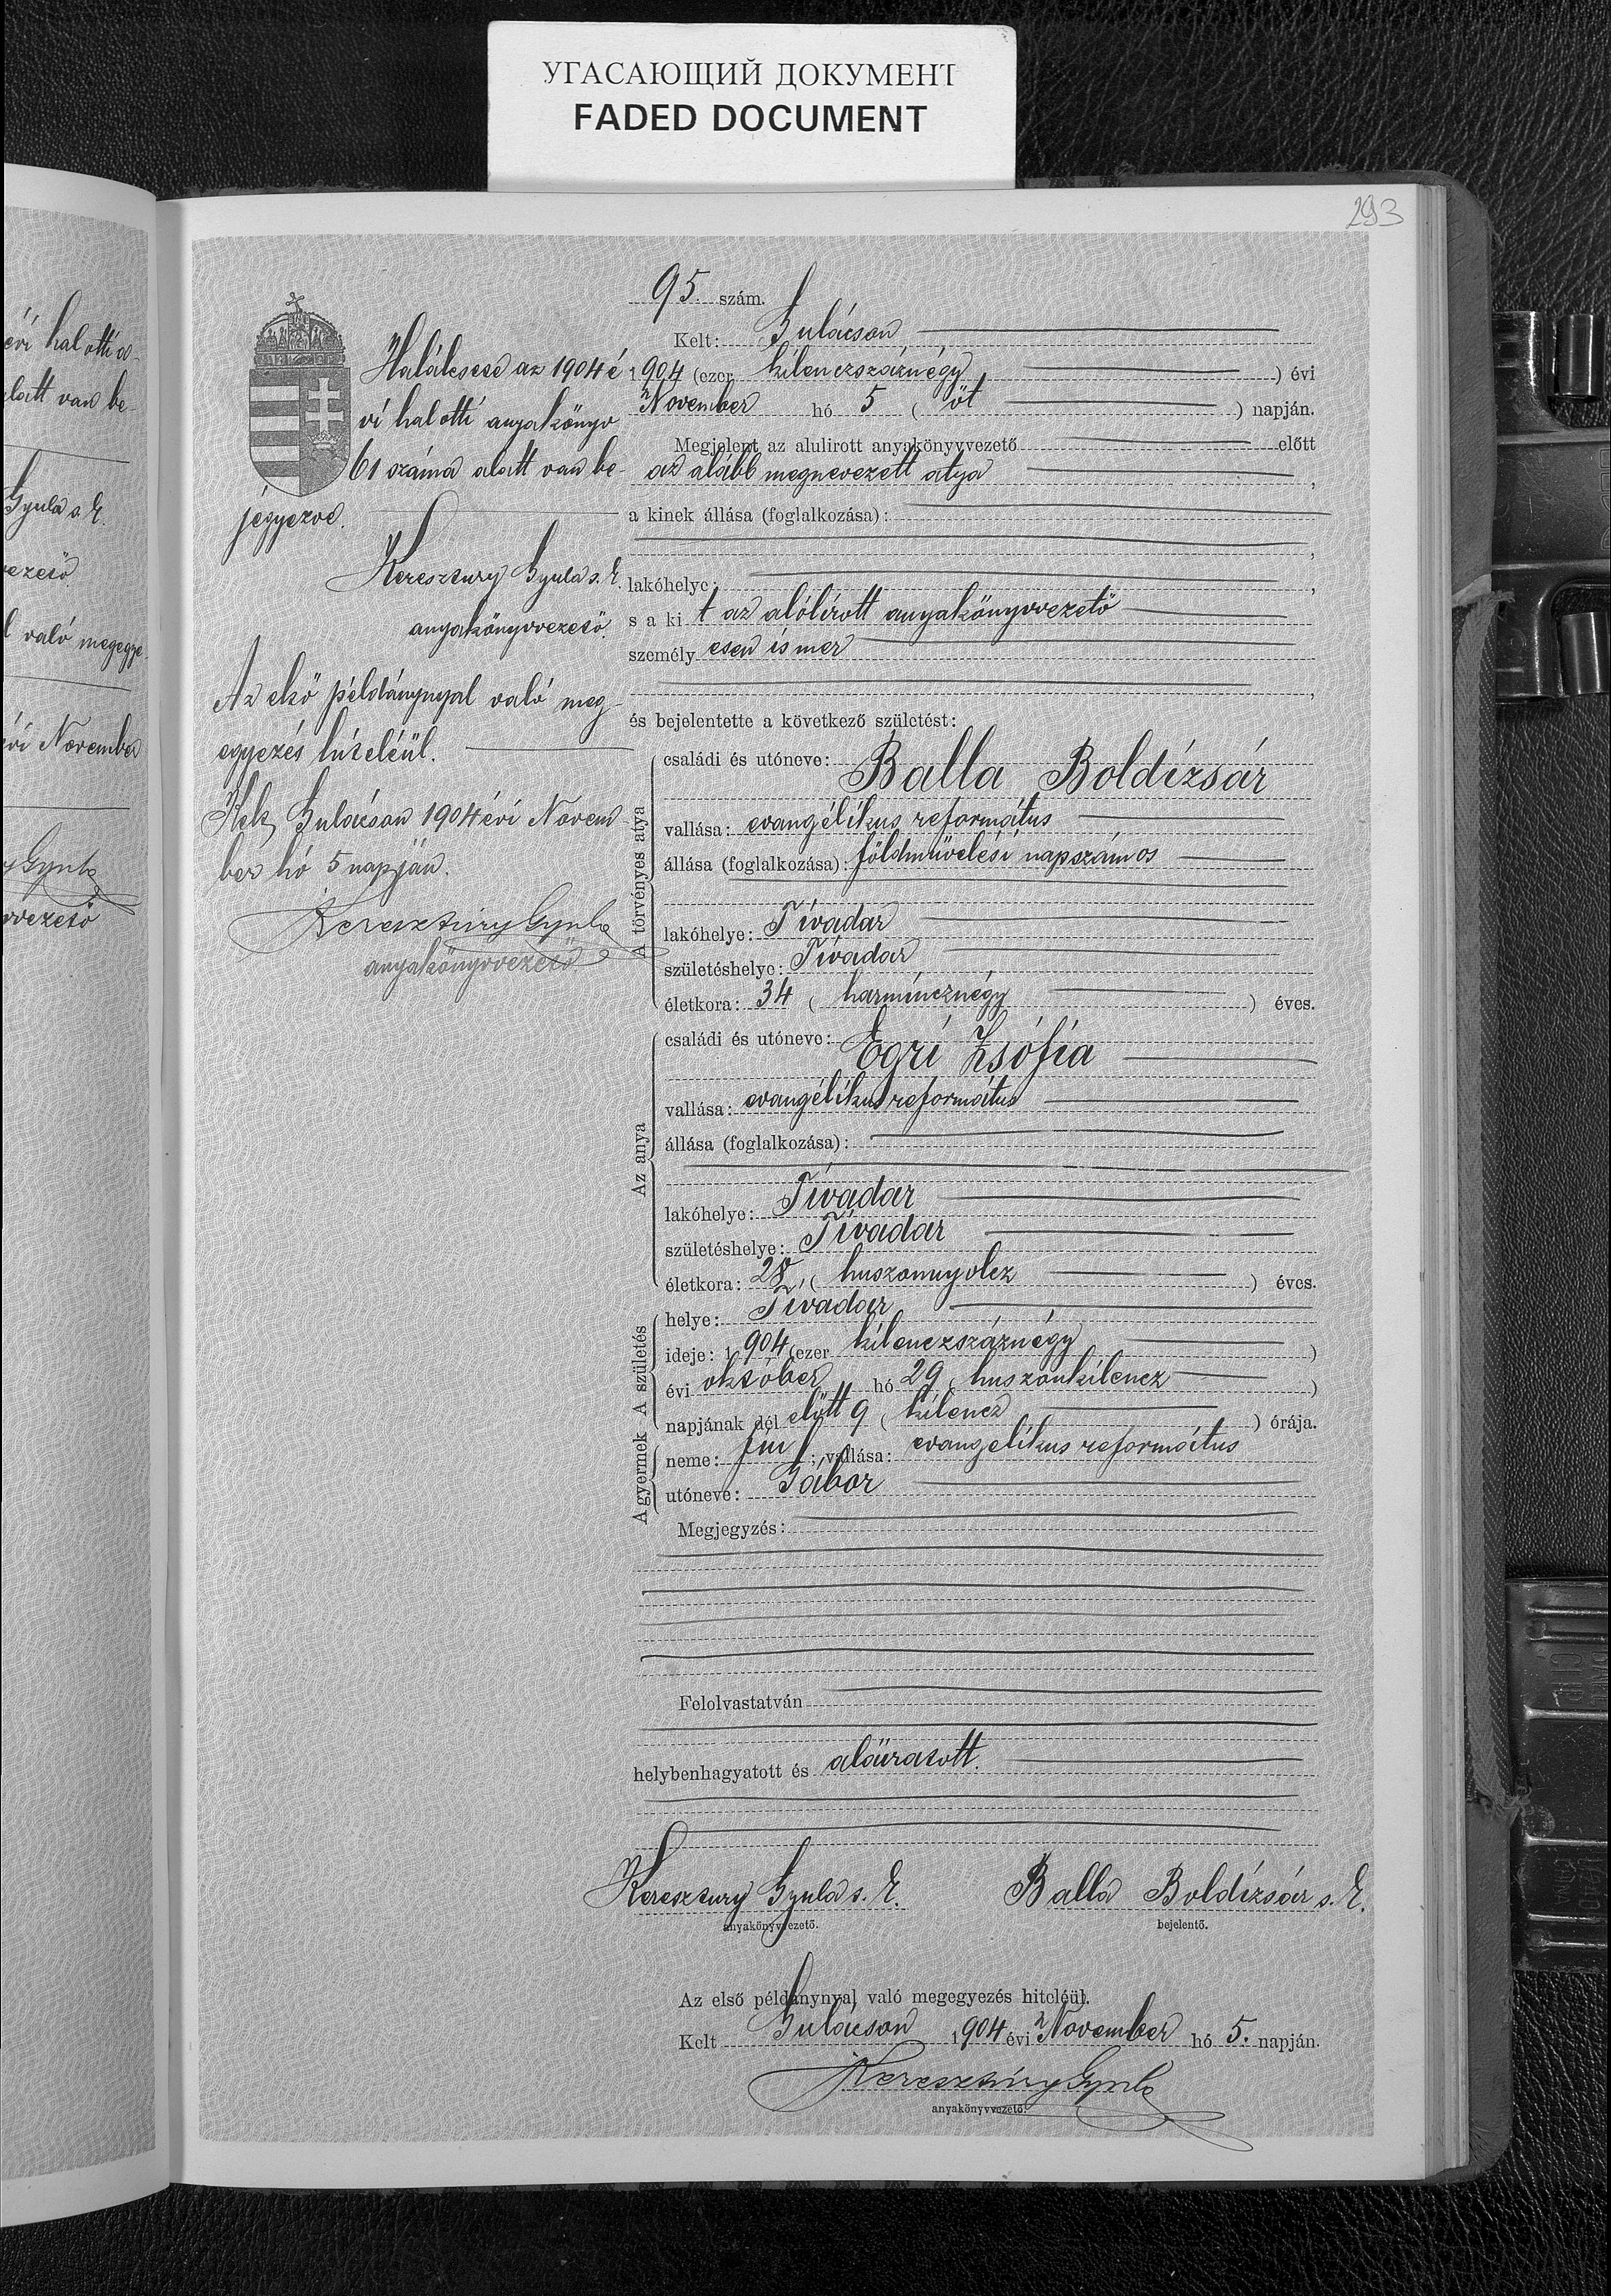 УГАСАЮЩИЙ ДОКУМЕНТ
FADED DOCUMENT
293
évi halotti a-
alatt van be-
Gyula s. k.
vezető
l való megegye-
évi November
y Gyula
vvezető
Haláleset az 1904 é
vi halotti anyakönyv
61 száma alatt van be-
jegyezve.
Keresztury Gyula s. k.
anyakönyvvezető.
Az első példánynyal való meg-
egyezés hiteléül.
Kelt, Gulácson 1904 évi Novem
ber hó 5 napján.
Keresztúry Gyula
anyakönyvvezető
95 szám.
Kelt: Gulácson
1904 (ezer kilenczszáznégy) évi
November hó 5 (öt) napján.
Megjelent az alulirott anyakönyvvezető előtt
az alább megnevezett atya,
a kinek állása (foglalkozása):
,
lakóhelye: ,
s a ki t az alólírott anyakönyvvezető
személy esen ismer
,
és bejelentette a következő születést:
A törvényes atya
családi és utóneve: Balla Boldizsár
vallása: evangélikus református
állása (foglalkozása): földművelési napszámos
lakóhelye: Tivadar
születéshelye: Tivadar
életkora: 34 (harmincznégy) éves.
Az anya
családi és utóneve: Egri Zsófia
vallása: evangélikus református
állása (foglalkozása):
lakóhelye: Tivadar
születéshelye: Tivadar
életkora: 28, (huszonnyolcz) éves.
A születés
helye: Tivadar
ideje: 1904 (ezer kilenczszáznégy)
évi október hó 29 (huszonkilencz)
napjának dél előtt 9 (kilencz) órája.
A gyermek
neme: fiú; vallása: evangelikus református
utóneve: Gábor
Megjegyzés:
Felolvastatván
helybenhagyatott és aláiratott.
Keresztury Gyula s. k. Balla Boldizsár s. k.
anyakönyvvezető. bejelentő.
Az első példánynyal való megegyezés hiteléül.
Kelt Gulácson 1904 évi November hó 5. napján.
Keresztúry Gyula
anyakönyvvezető.